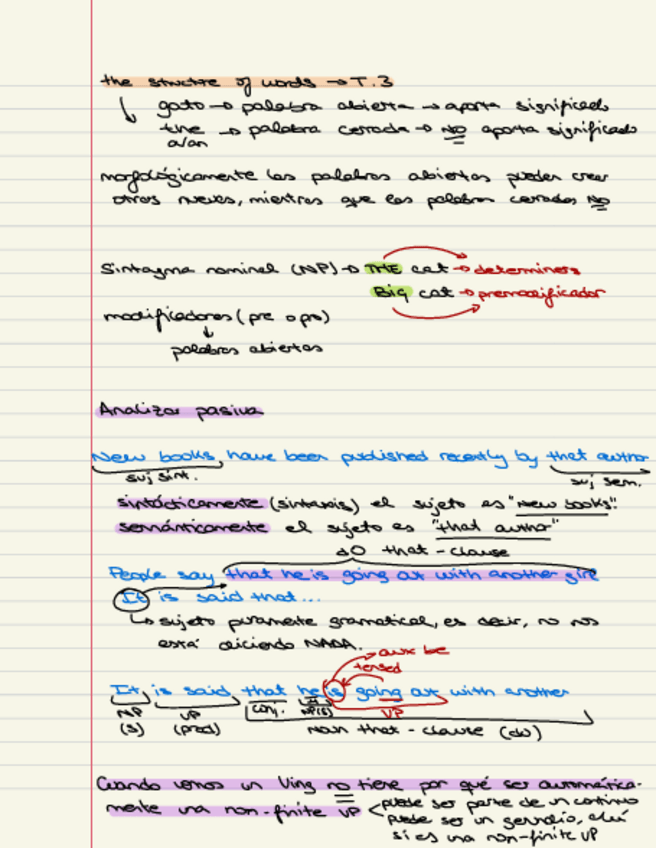 the structre of words → T.3
gato → palabra abierta → aporta significado
the → palabra cerrada → NO aporta significado
a/an
morfológicamente las palabras abiertas pueden crear
otras nuevas, mientras que las palabras cerradas NO
Sintagma nominal (NP) → THE cat → determiners
Big cat → premodificador
modificadores (pre o pos)
palabras abiertas
Analizar pasiva
New books have been published recently by that author
suj sint. suj sem.
sintácticamente (sintaxis) el sujeto es "New books".
semánticamente el sujeto es "that author"
dO that-clause
People say that he is going out with another girl
It is said that...
↳ sujeto puramente gramatical, es decir, no nos
está diciendo NADA.
aux be
tensed
It is said that he is going out with another
NP VP conj. NP(s) VP
(s) (pred) Noun that-clause (do)
Cuando vemos un Ving no tiene por qué ser automática-
mente una non-finite VP < puede ser parte de un continuo
puede ser un gerundio, ahí
sí es una non-finite VP